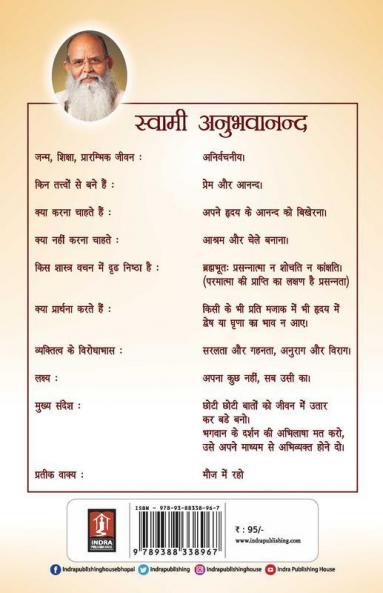 स्वामी अनुभवानन्द
जन्म, शिक्षा, प्रारम्भिक जीवन : अनिर्वचनीय।
किन तत्त्वों से बने हैं : प्रेम और आनन्द।
क्या करना चाहते हैं : अपने हृदय के आनन्द को बिखेरना।
क्या नहीं करना चाहते : आश्रम और चेले बनाना।
किस शास्त्र वचन में दृढ निष्ठा है : ब्रह्मभूतः प्रसन्नात्मा न शोचति न कांक्षति।
(परमात्मा की प्राप्ति का लक्षण है प्रसन्नता)
क्या प्रार्थना करते हैं : किसी के भी प्रति मजाक में भी हृदय में
द्वेष या घृणा का भाव न आए।
व्यक्तित्व के विरोधाभास : सरलता और गहनता, अनुराग और विराग।
लक्ष्य : अपना कुछ नहीं, सब उसी का।
मुख्य संदेश : छोटी छोटी बातों को जीवन में उतार
कर बडे बनो।
भगवान के दर्शन की अभिलाषा मत करो,
उसे अपने माध्यम से अभिव्यक्त होने दो।
प्रतीक वाक्य : मौज में रहो
ISBN - 978-93-88338-96-7
9 789388 338967
INDRA
₹ : 95/-
www.indrapublishing.com
Indrapublishinghousebhopal Indrapublishing Indrapublishinghouse Indra Publishing House